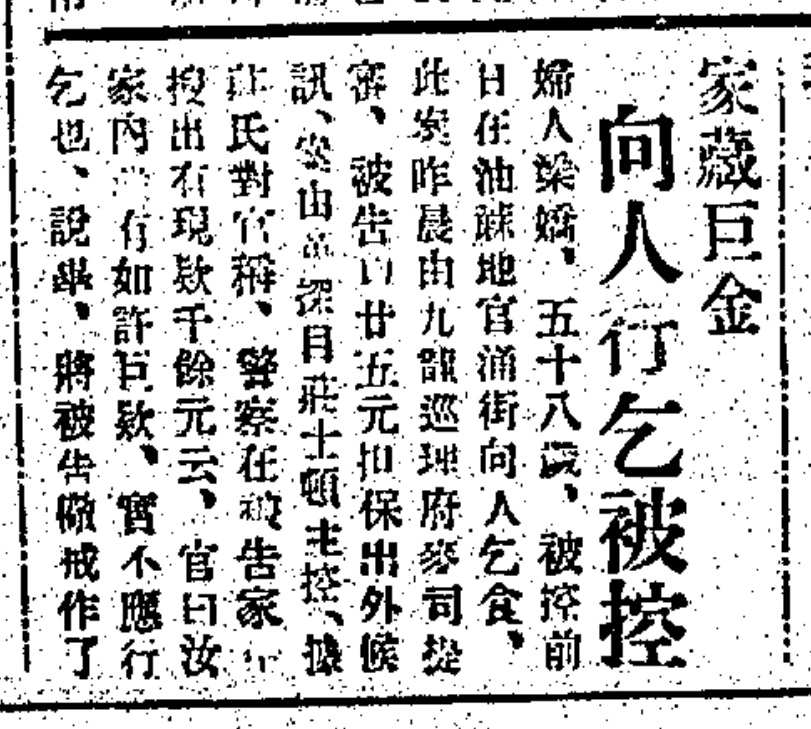 家藏巨金
向人行乞被控
婦人梁嬌、五十八歲、被控前
日在油蔴地官涌街向人乞食、
此案昨晨由九龍巡理府麥司提
審、被告以廿五元担保出外候
訊、案由 探目莊士頓主控、據
莊氏對官稱、警察在被告家
搜出有現欵千餘元云、官曰汝
家內 有如許巨欵、實不應行
乞也、說畢、將被告儆戒作了